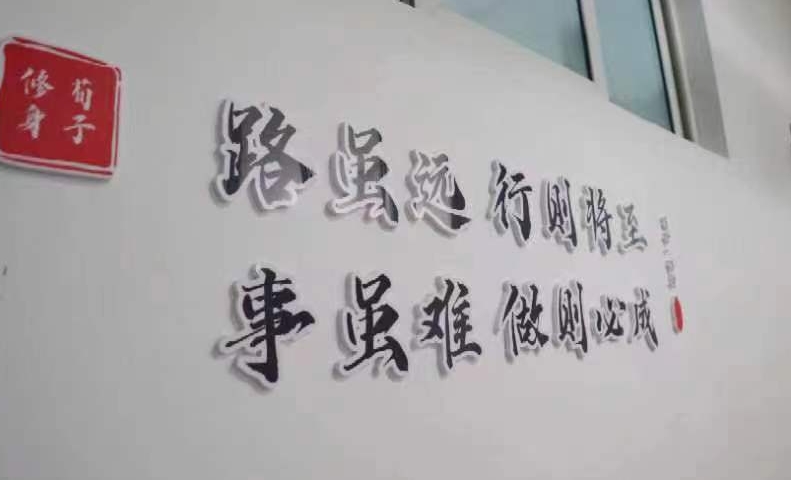 荀子
修身
路虽远 行则将至
事虽难 做则必成